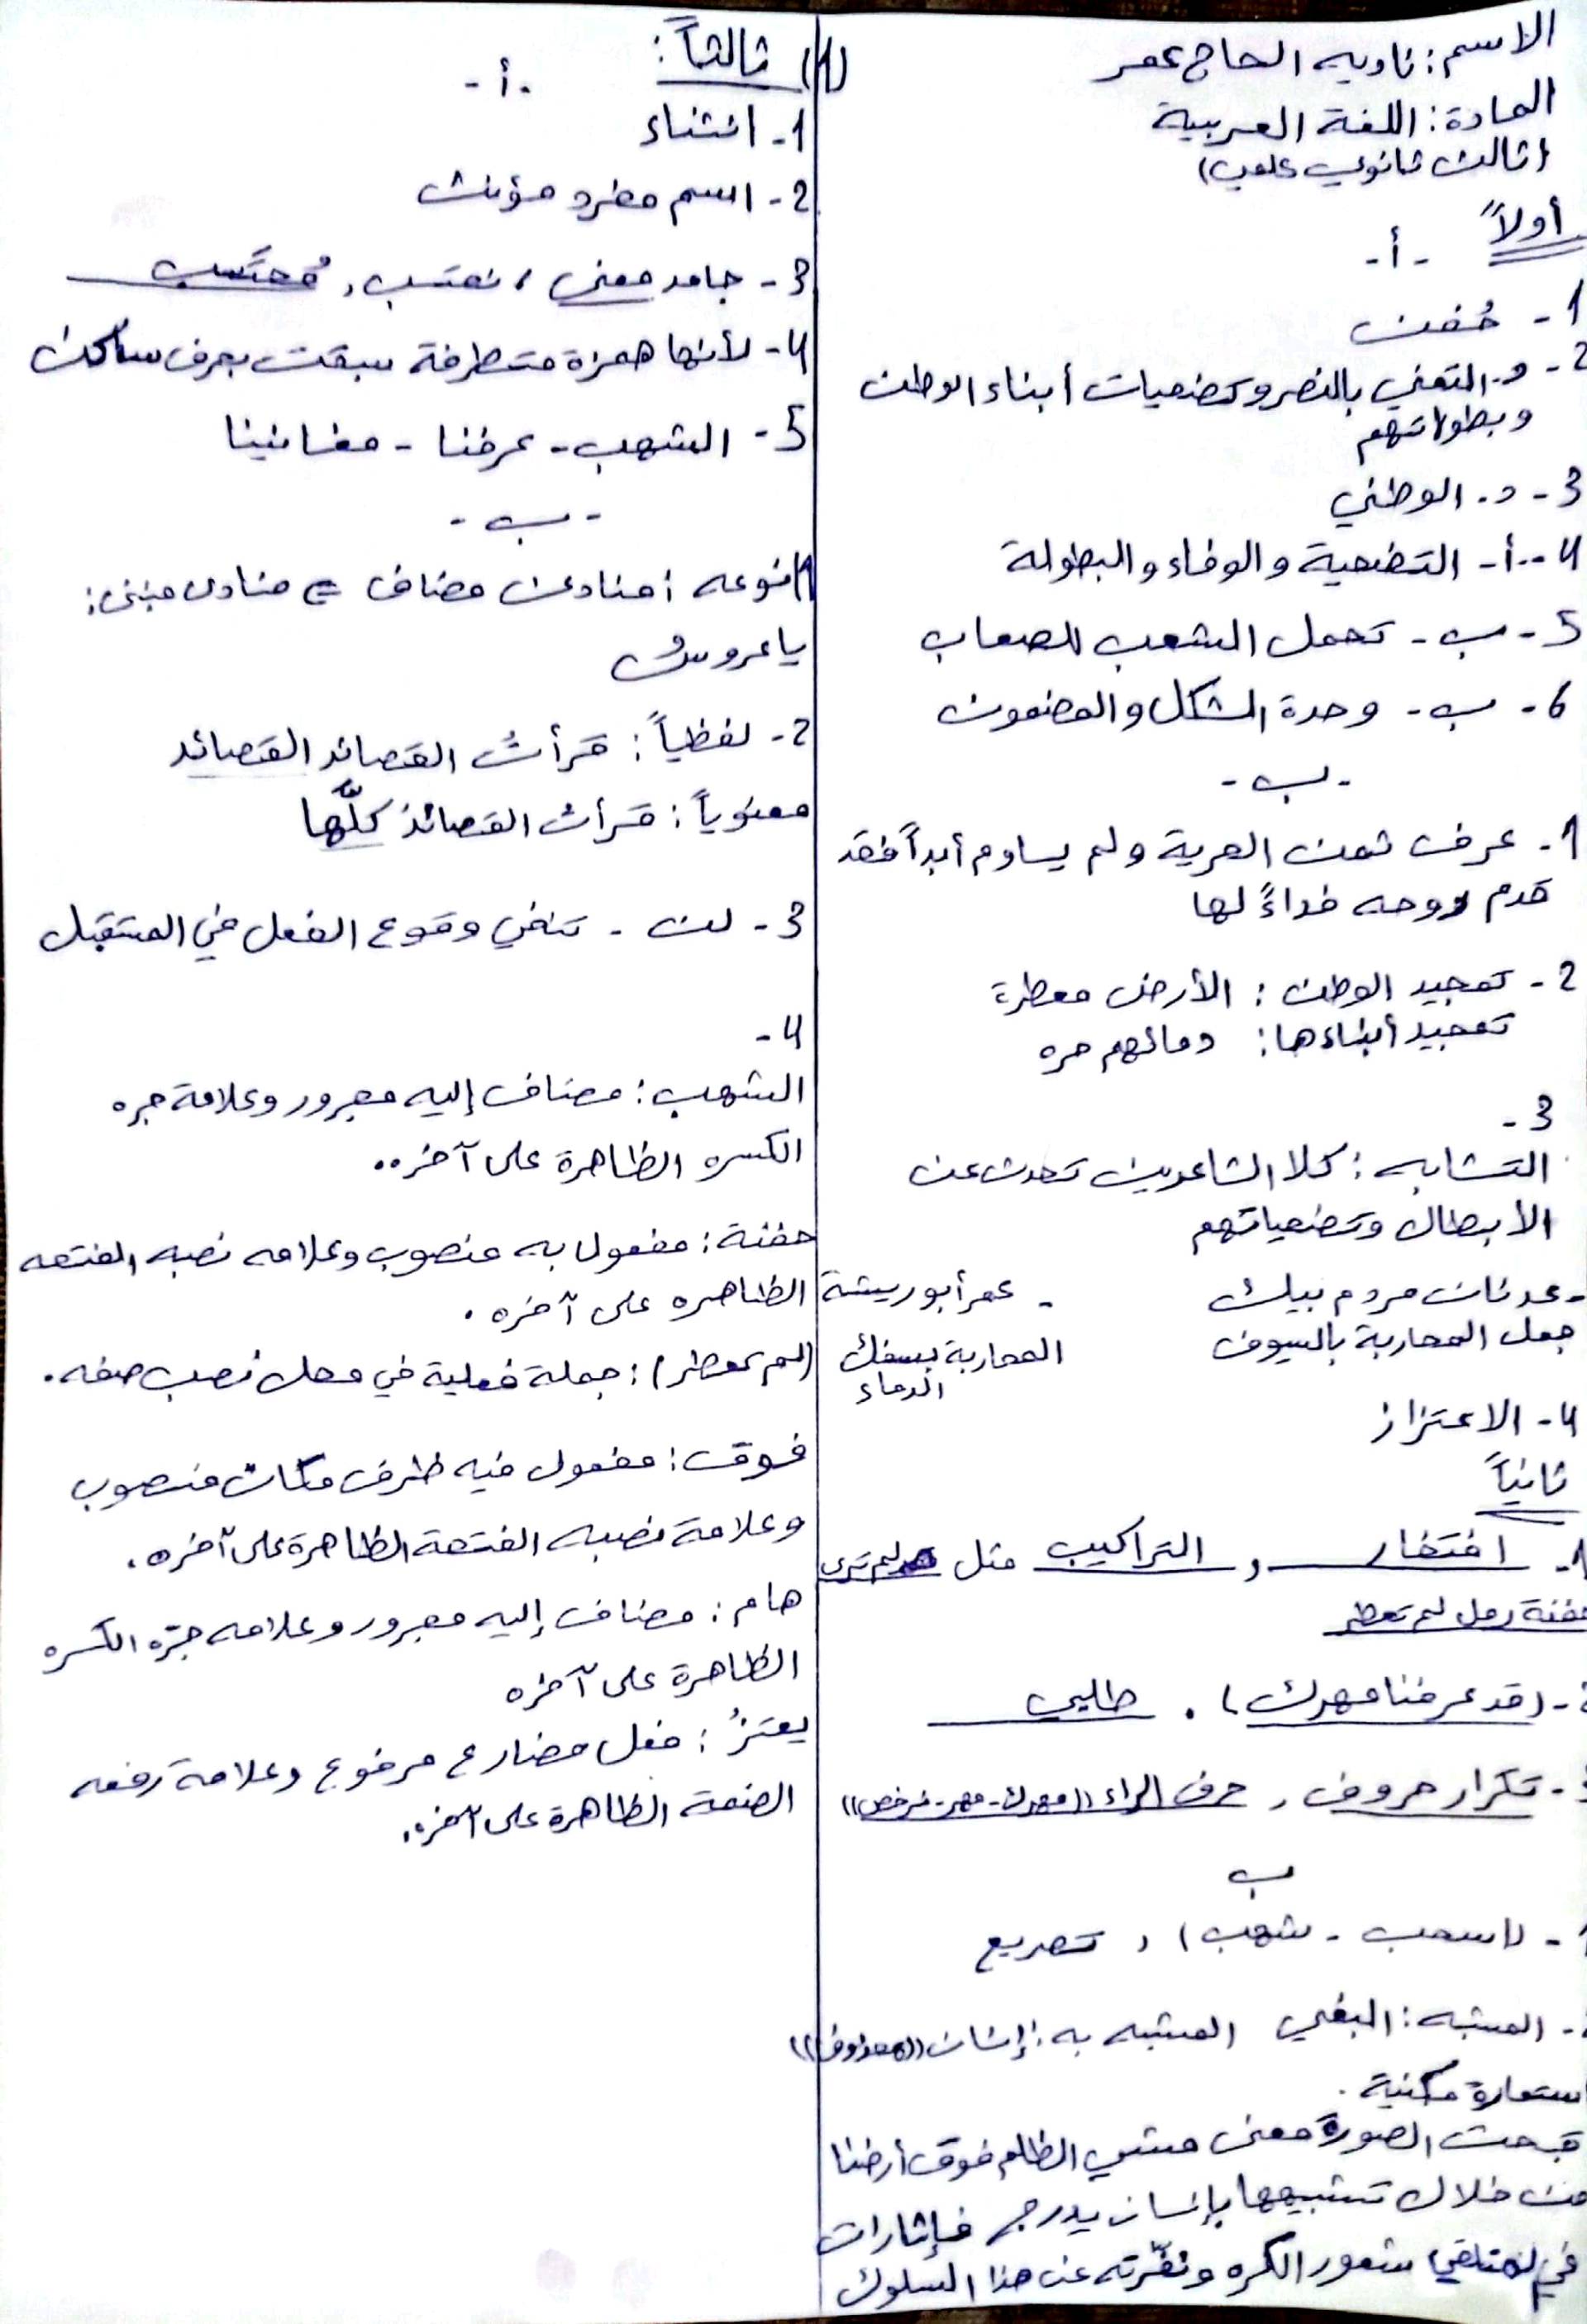 الاسم: ناديه الحاج عمر
المادة: اللغة العربية
(ثالث ثانوي علمي)
أولاً
-أ-
1- حُفن
2- د. التغني بالنصر وتضحيات أبناء الوطن
وبطولاتهم
3- د. الوطني
4-أ- التضحية والوفاء والبطولة
5- ب- تحمل الشعب للصعاب
6- ب- وحدة الشكل والمضمون
-ب-
1- عرف ثمن الحرية ولم يساوم أبداً فقد
قدم روحه فداءً لها
2- تمجيد الوطن: الأرض معطرة
تمجيد أبناءها: دمائهم حره
3-
التشابه: كلا الشاعرين تحدث عن
الأبطال وتضحياتهم
-عدنان مردم بيك - عمر أبو ريشة
جعل المحاربة بالسيوف المحاربة بسفك
الدماء
4- الاعتزاز
ثانياً
1- افتخار، التراكيب مثل لم ترى
حفنة رمل لم تعطر
- (قد عرفنا مهرك). طلبي
- تكرار حروف، حرف الراء ((مهرك-مهر-نرخص))
ب
1- (اسحب - شهب)، تصريع
- المشبه: البغي المشبه به: إنسان ((محذوف))
استعارة مكنية.
قبحت الصورة معنى مشي الظالم فوق أرضنا
من خلال تشبيهها بإنسان يدرج فإثارات
في المتلقي شعور الكره ونفّرته عن هذا السلوك
(1) ثالثاً:
-أ-
1- انتشاء
2- اسم مفرد مؤنث
3- جامد معنى، نحتسب، مُحتَسب
4- لأنها همزة متطرفة سبقت بحرف ساكن
5- الشهب - عرفنا - مغانينا
-ب-
1) نوعه: منادى مضاف منادى مبني:
يا عروسُ
2- لفظياً: قرأتُ القصائد القصائد
معنوياً: قرأت القصائدَ كلَّها
3- لن - تنفي وقوع الفعل في المستقبل
4-
الشهب: مضاف إليه مجرور وعلامة جره
الكسره الظاهرة على آخره.
حفنة: مفعول به منصوب وعلامه نصبه الفتحه
الظاهره على آخره.
(لم تعطر): جملة فعلية في محل نصب صفه.
فوق: مفعول فيه ظرف مكان منصوب
وعلامة نصبه الفتحة الظاهرة على آخره.
هام: مضاف إليه مجرور وعلامه جرّه الكسره
الظاهرة على آخره
يعتزُ: فعل مضارع مرفوع وعلامة رفعه
الضمة الظاهرة على آخره.